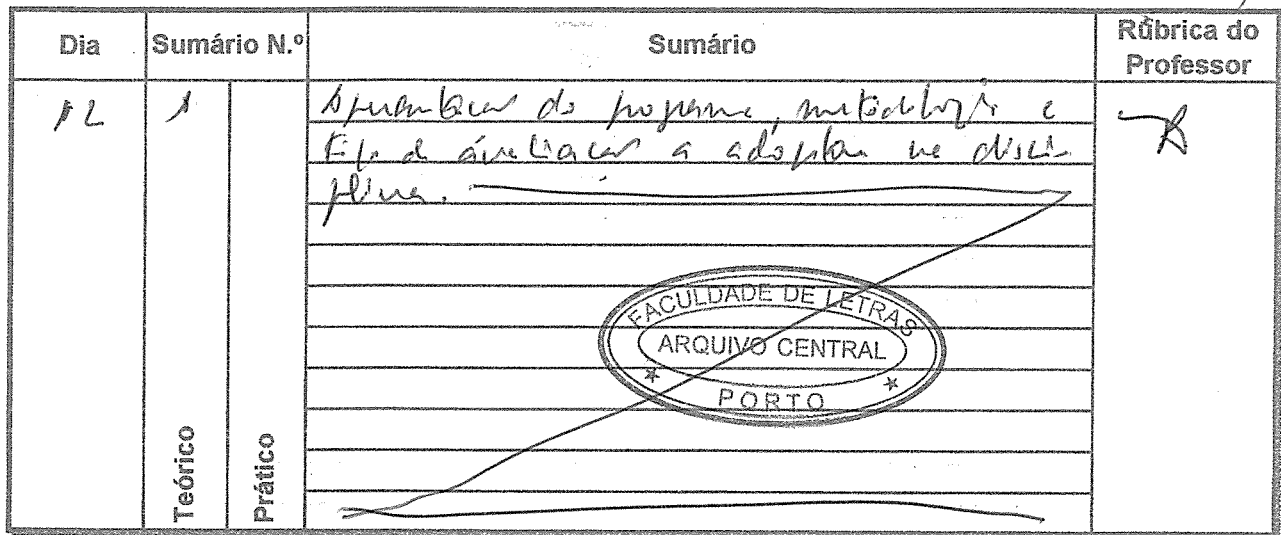 Dia
Sumário N.º
Sumário
Rúbrica do
Professor
12
1
Apresentação do programa, metodologia e
tipo de avaliação a adoptar na disci-
plina.
FACULDADE DE LETRAS
ARQUIVO CENTRAL
PORTO
Teórico
Prático